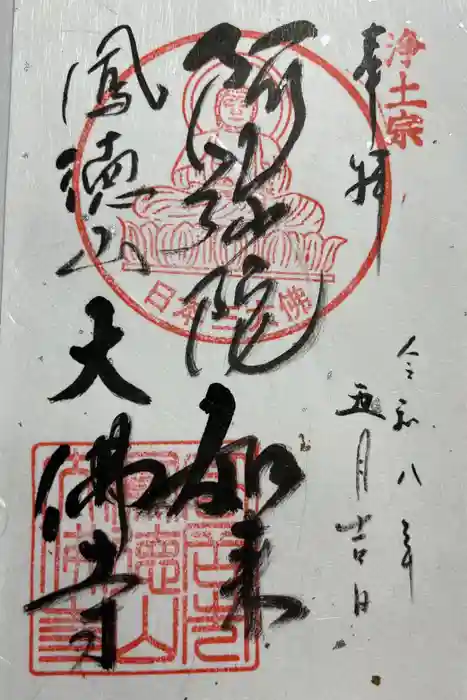 浄土宗
奉拝
令和八年
五月吉日
阿弥陀如来
日本三大佛
鳳徳山
大佛寺